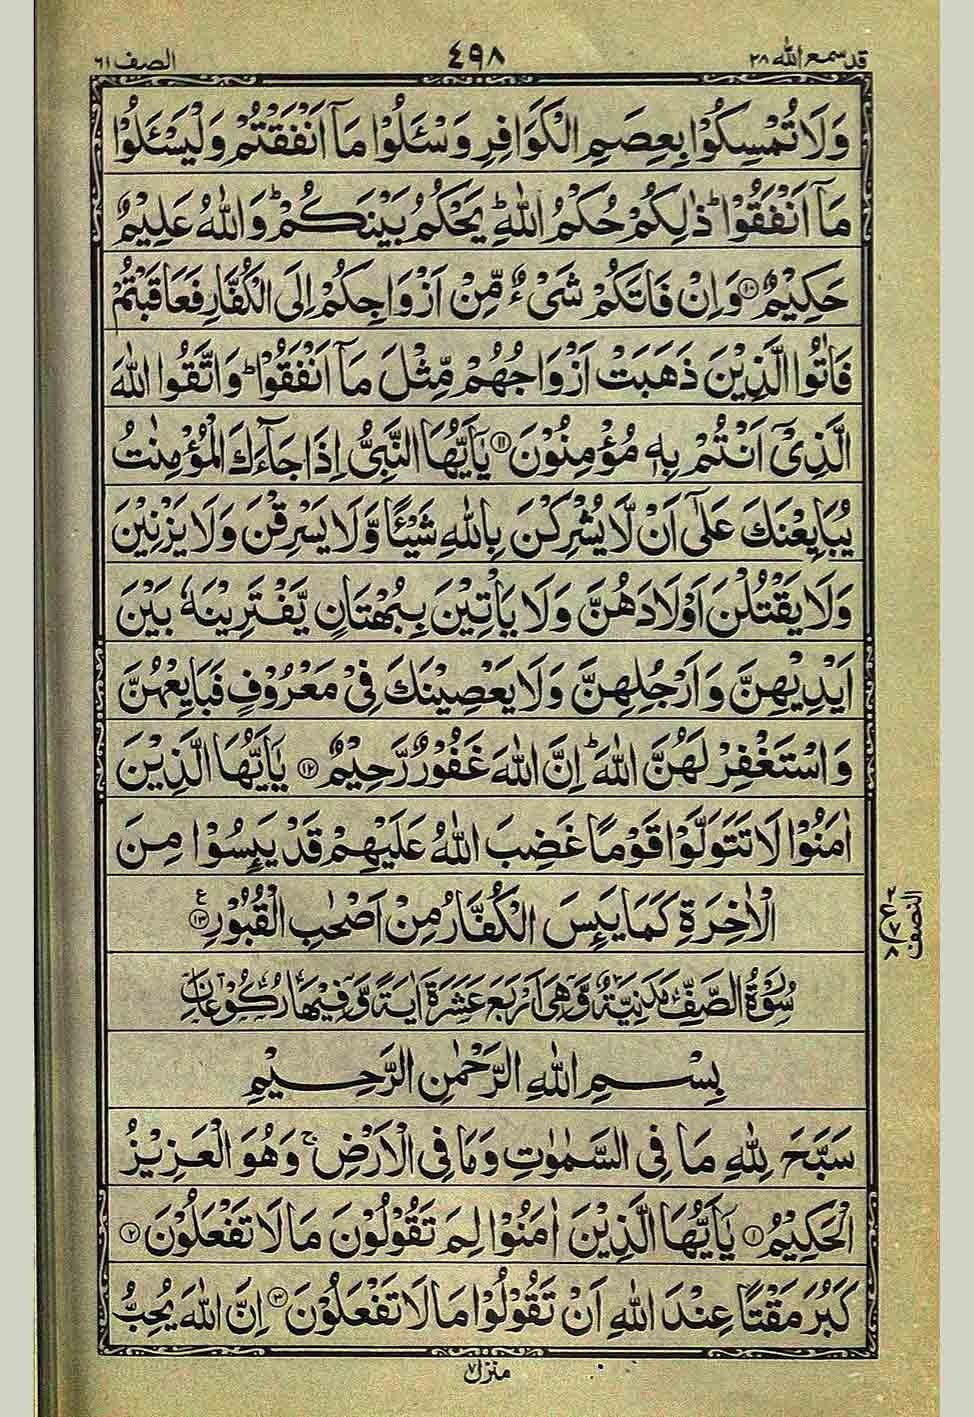 قد سمع الله ٢٨ ٤٩٨ الصف ٦١
وَلَا تُمْسِكُوْا بِعِصَمِ الْكَوَافِرِ وَسْـَٔلُوْا مَآ اَنْفَقْتُمْ وَلْيَسْـَٔلُوْا
مَآ اَنْفَقُوْا ؕ ذٰلِكُمْ حُكْمُ اللّٰهِ ؕ يَحْكُمُ بَيْنَكُمْ ؕ وَاللّٰهُ عَلِيْمٌ
حَكِيْمٌ ۝۱۰ وَاِنْ فَاتَكُمْ شَیْءٌ مِّنْ اَزْوَاجِكُمْ اِلَی الْكُفَّارِ فَعَاقَبْتُمْ
فَاٰتُوا الَّذِيْنَ ذَهَبَتْ اَزْوَاجُهُمْ مِّثْلَ مَآ اَنْفَقُوْا ؕ وَاتَّقُوا اللّٰهَ
الَّذِیْٓ اَنْتُمْ بِهٖ مُؤْمِنُوْنَ ۝۱۱ يٰٓاَيُّهَا النَّبِیُّ اِذَا جَآءَكَ الْمُؤْمِنٰتُ
يُبَايِعْنَكَ عَلٰٓی اَنْ لَّا يُشْرِكْنَ بِاللّٰهِ شَيْـًٔا وَّلَا يَسْرِقْنَ وَلَا يَزْنِيْنَ
وَلَا يَقْتُلْنَ اَوْلَادَهُنَّ وَلَا يَاْتِيْنَ بِبُهْتَانٍ يَّفْتَرِيْنَهٗ بَيْنَ
اَيْدِيْهِنَّ وَاَرْجُلِهِنَّ وَلَا يَعْصِيْنَكَ فِیْ مَعْرُوْفٍ فَبَايِعْهُنَّ
وَاسْتَغْفِرْ لَهُنَّ اللّٰهَ ؕ اِنَّ اللّٰهَ غَفُوْرٌ رَّحِيْمٌ ۝۱۲ يٰٓاَيُّهَا الَّذِيْنَ
اٰمَنُوْا لَا تَتَوَلَّوْا قَوْمًا غَضِبَ اللّٰهُ عَلَيْهِمْ قَدْ يَىِٕسُوْا مِنَ
الْاٰخِرَةِ كَمَا يَىِٕسَ الْكُفَّارُ مِنْ اَصْحٰبِ الْقُبُوْرِ ۝۱۳ ع
سُوْرَةُ الصَّفِّ مَدَنِيَّةٌ وَّهِیَ اَرْبَعَ عَشَرَةَ اٰيَةً وَّفِيْهَا رُكُوْعَانِ
بِسْمِ اللّٰهِ الرَّحْمٰنِ الرَّحِيْمِ
سَبَّحَ لِلّٰهِ مَا فِی السَّمٰوٰتِ وَمَا فِی الْاَرْضِ ۚ وَهُوَ الْعَزِيْزُ
الْحَكِيْمُ ۝۱ يٰٓاَيُّهَا الَّذِيْنَ اٰمَنُوْا لِمَ تَقُوْلُوْنَ مَا لَا تَفْعَلُوْنَ ۝۲
كَبُرَ مَقْتًا عِنْدَ اللّٰهِ اَنْ تَقُوْلُوْا مَا لَا تَفْعَلُوْنَ ۝۳ اِنَّ اللّٰهَ يُحِبُّ
منزل ٧
النصف